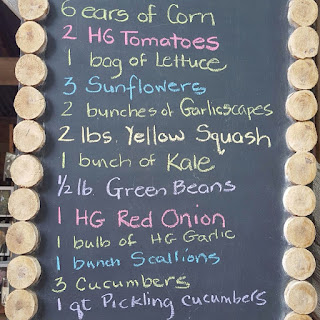 6 ears of Corn
2 HG Tomatoes
1 bag of Lettuce
3 Sunflowers
2 bunches of Garlicscapes
2 lbs. Yellow Squash
1 bunch of Kale
1/2 lb. Green Beans
1 HG Red Onion
1 bulb of HG Garlic
1 bunch Scallions
3 Cucumbers
1 qt Pickling cucumbers